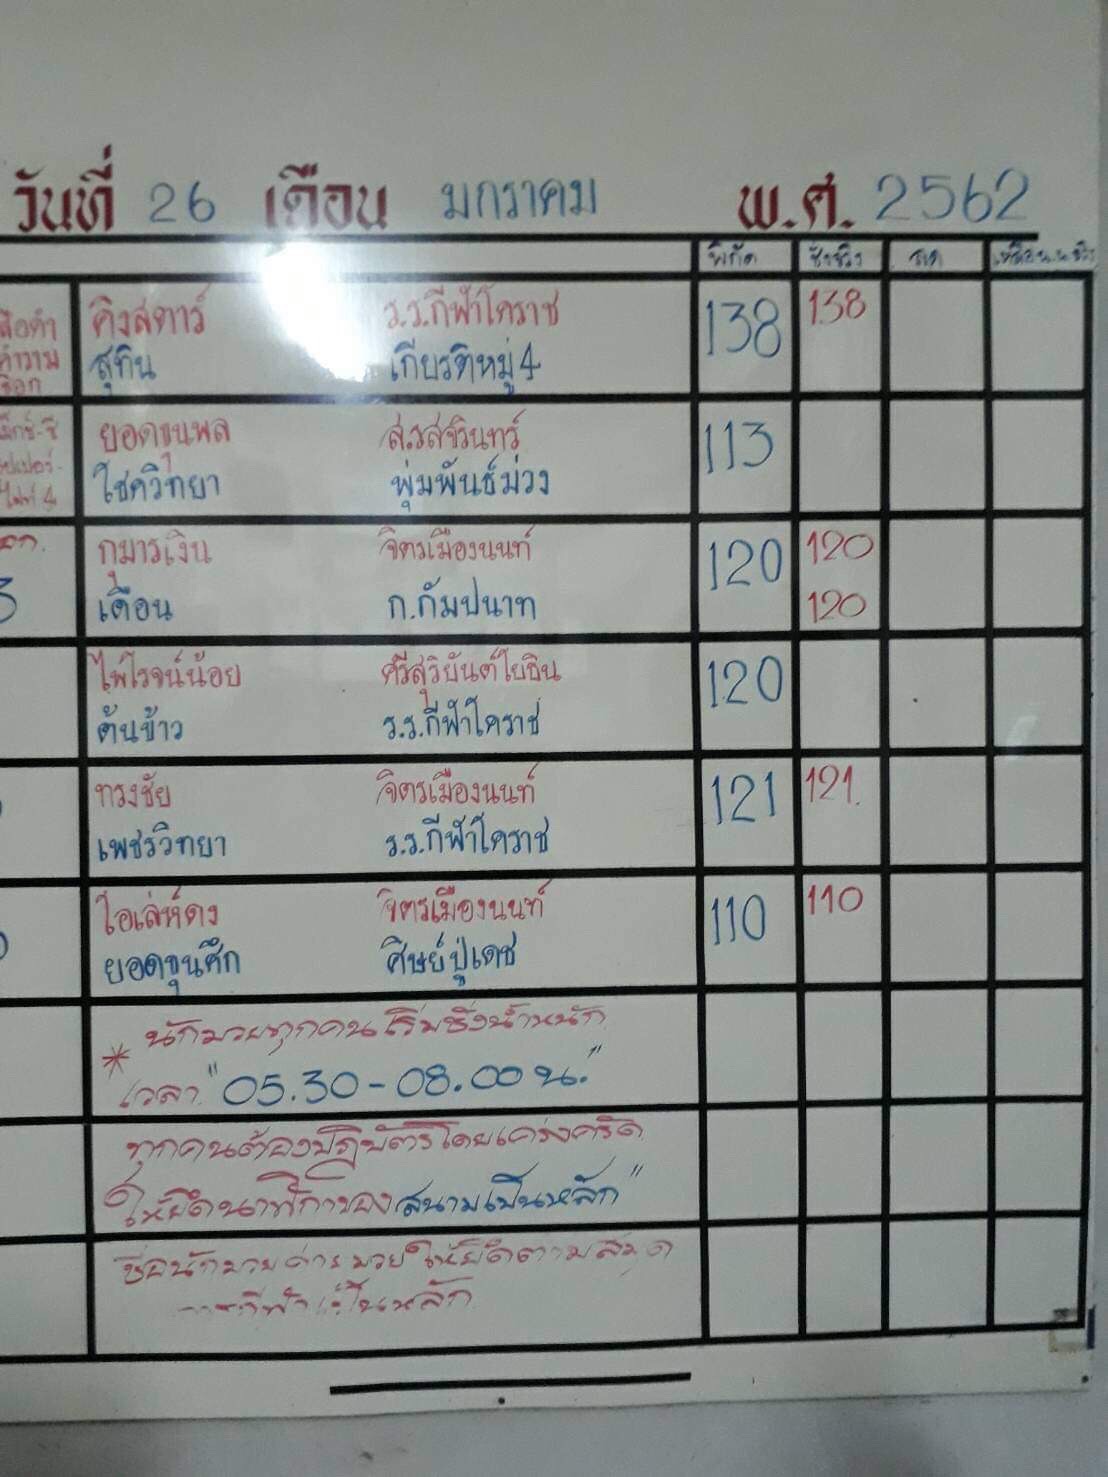 วันที่ 26 เดือน มกราคม พ.ศ. 2562
พิกัด ชั่งจริง
คิงสตาร์ ร.ร.กีฬาโคราช 138 138
สุทิน เกียรติหมู่4
ยอดขุนพล ส.รสจรินทร์ 113
โชควิทยา พุ่มพันธ์ม่วง
กุมารเงิน จิตรเมืองนนท์ 120 120
เดือน ก.กัมปนาท 120
ไพโรจน์น้อย ศรีสุริยันต์โยธิน 120
ต้นข้าว ร.ร.กีฬาโคราช
ทรงชัย จิตรเมืองนนท์ 121 121
เพชรวิทยา ร.ร.กีฬาโคราช
ไอเล่ห์ดง จิตรเมืองนนท์ 110 110
ยอดขุนศึก ศิษย์ปู่เดช
* นักมวยทุกคนเริ่มชั่งน้ำหนัก
เวลา "05.30-08.00 น."
ทุกคนต้องปฏิบัติโดยเคร่งครัด
ให้ยึดนาฬิกาของสนามเป็นหลัก"
ชื่อนักมวย ค่ายมวยให้ยึดตามสมุด
กีฬาเป็นหลัก